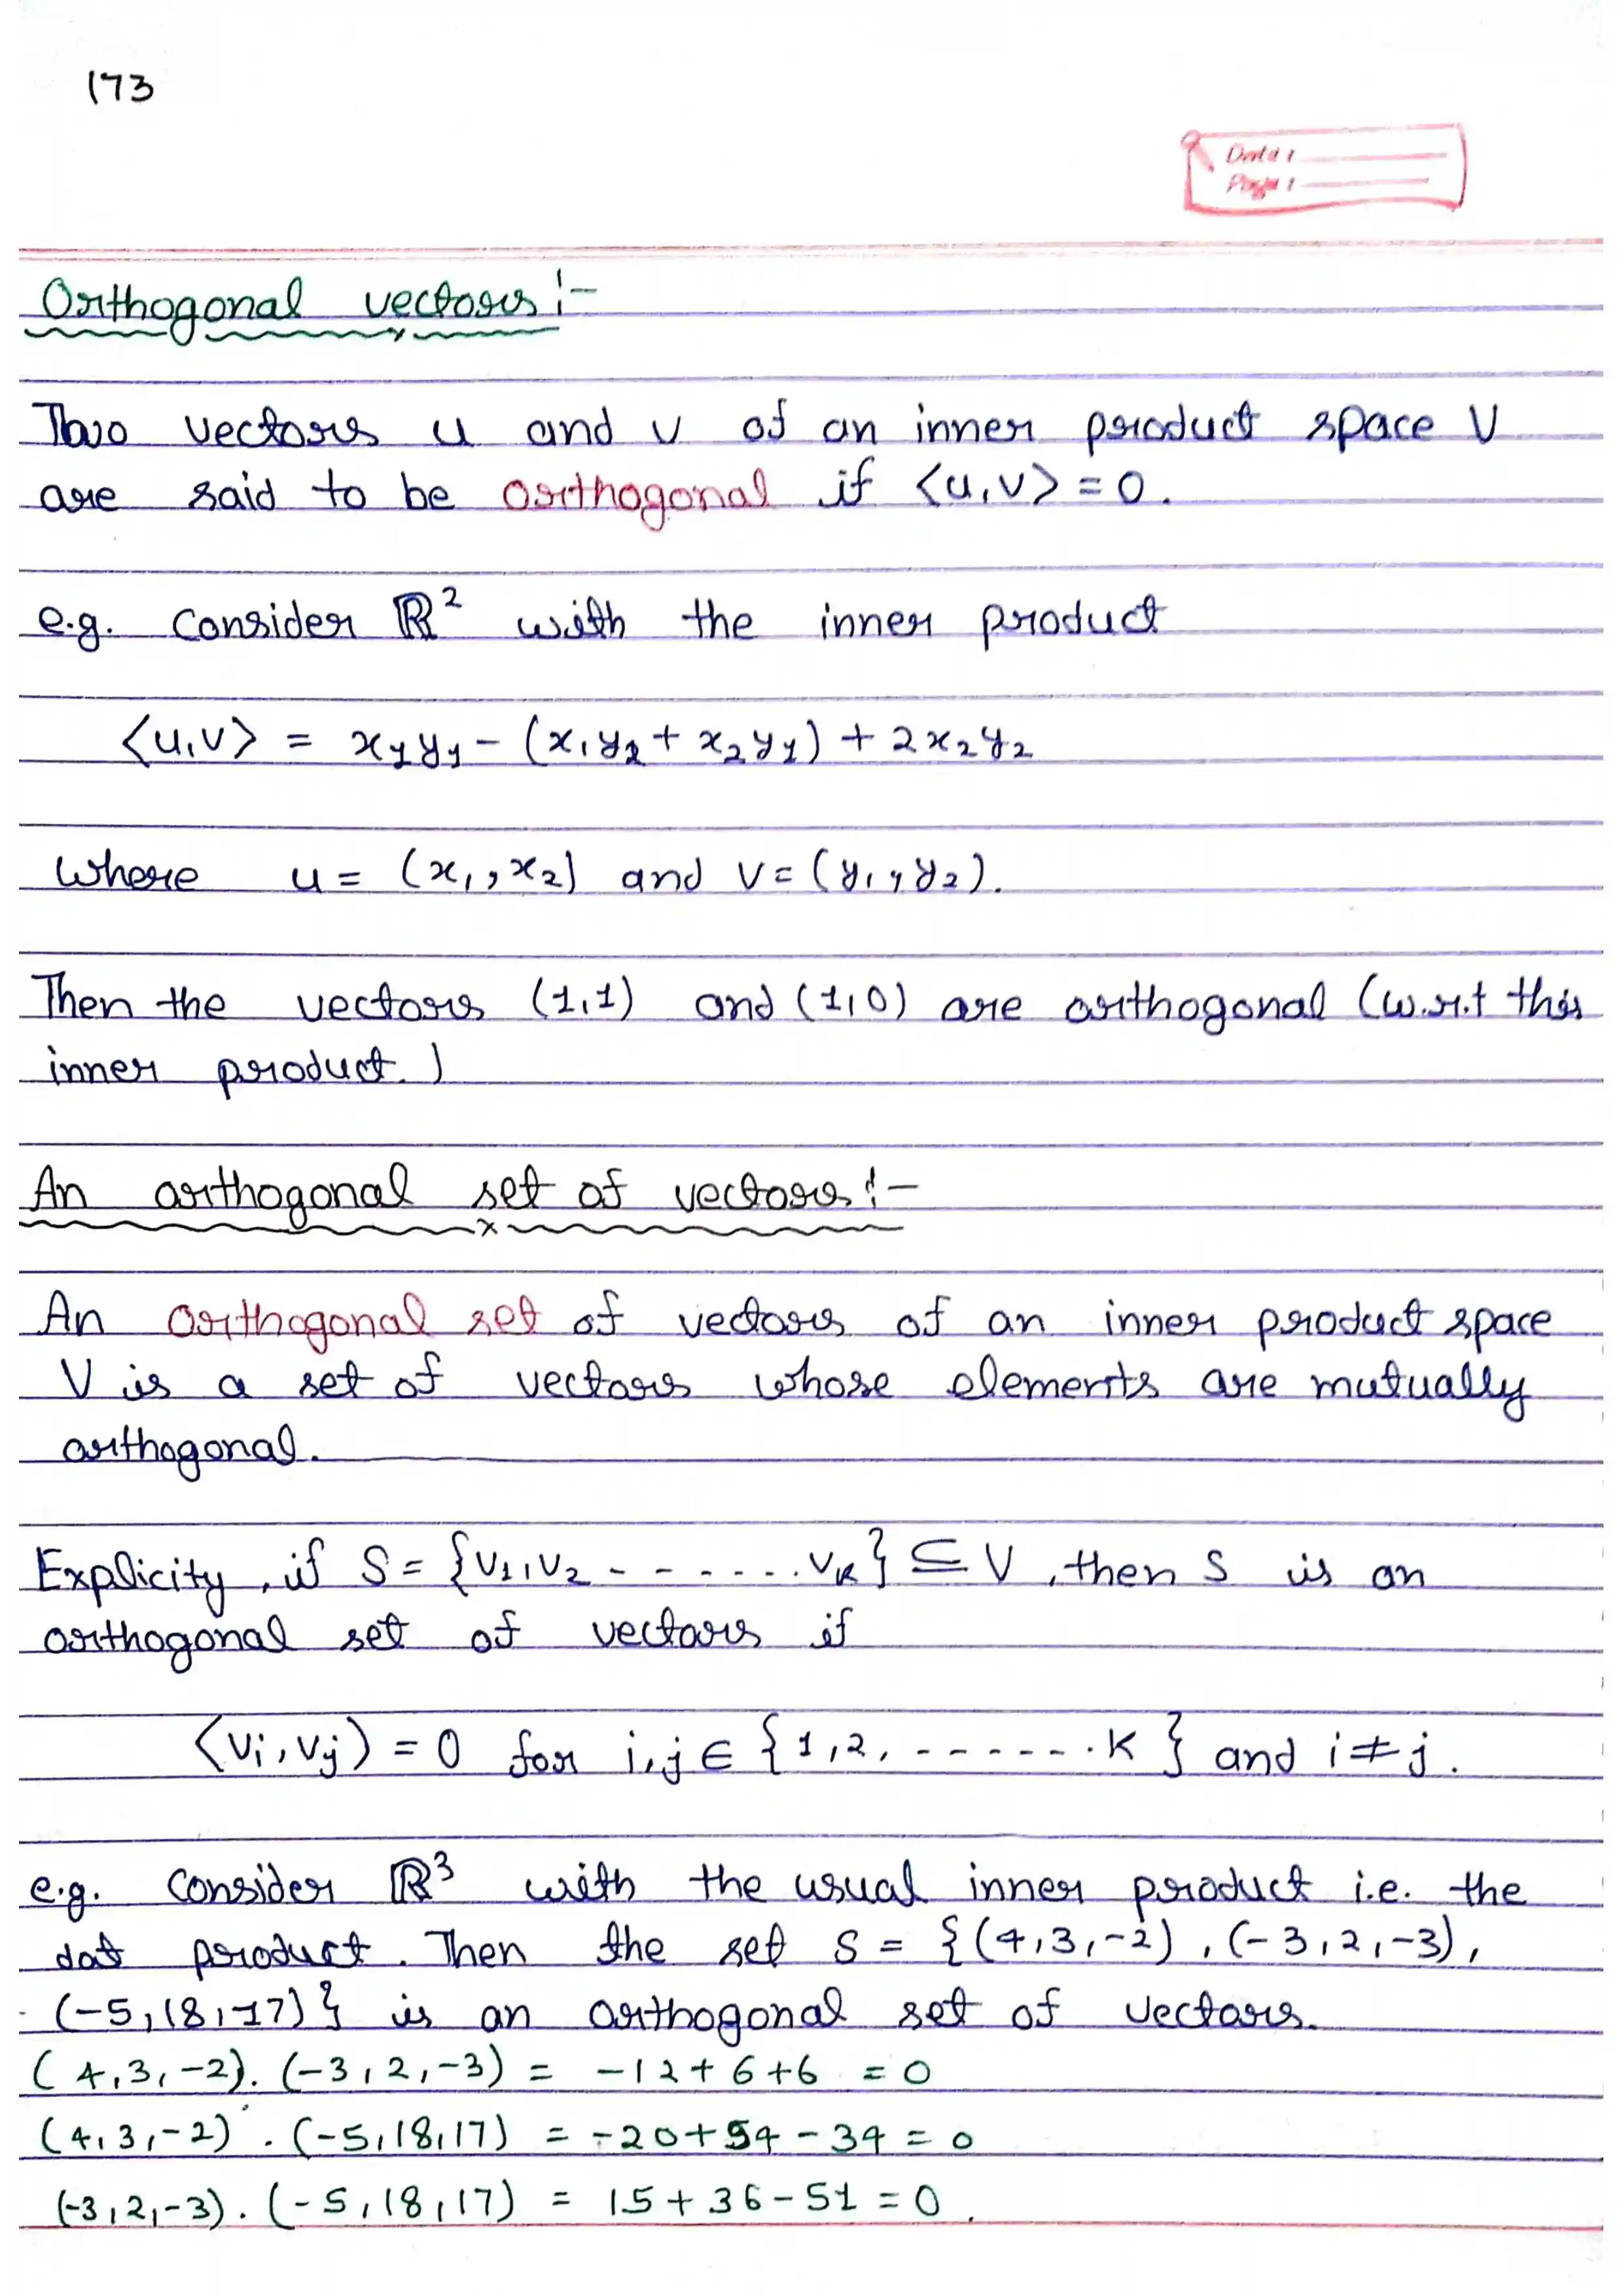 173
Date :
Page :
Orthogonal vectors :-
Two vectors u and v of an inner product space V
are said to be orthogonal if <u,v> = 0.
e.g. Consider ℝ² with the inner product
<u,v> = x₁y₁ - (x₁y₂ + x₂y₁) + 2x₂y₂
Where u = (x₁, x₂) and v = (y₁, y₂).
Then the vectors (1,1) and (1,0) are orthogonal (w.r.t this
inner product.)
An orthogonal set of vectors :-
An orthogonal set of vectors of an inner product space
V is a set of vectors whose elements are mutually
orthogonal.
Explicity, if S = {v₁,v₂ - - - - - .. vₖ} ⊆ V, then S is an
orthogonal set of vectors if
<vᵢ, vⱼ) = 0 for i,j ∈ {1,2, - - - - - - . K } and i ≠ j.
e.g. Consider ℝ³ with the usual inner product i.e. the
dot product. Then the set S = {(4,3,-2), (-3,2,-3),
(-5,18,17)} is an orthogonal set of vectors.
(4,3,-2). (-3,2,-3) = -12+6+6 = 0
(4,3,-2) . (-5,18,17) = -20+54-34 = 0
(-3,2,-3) . (-5,18,17) = 15+36-51 = 0.